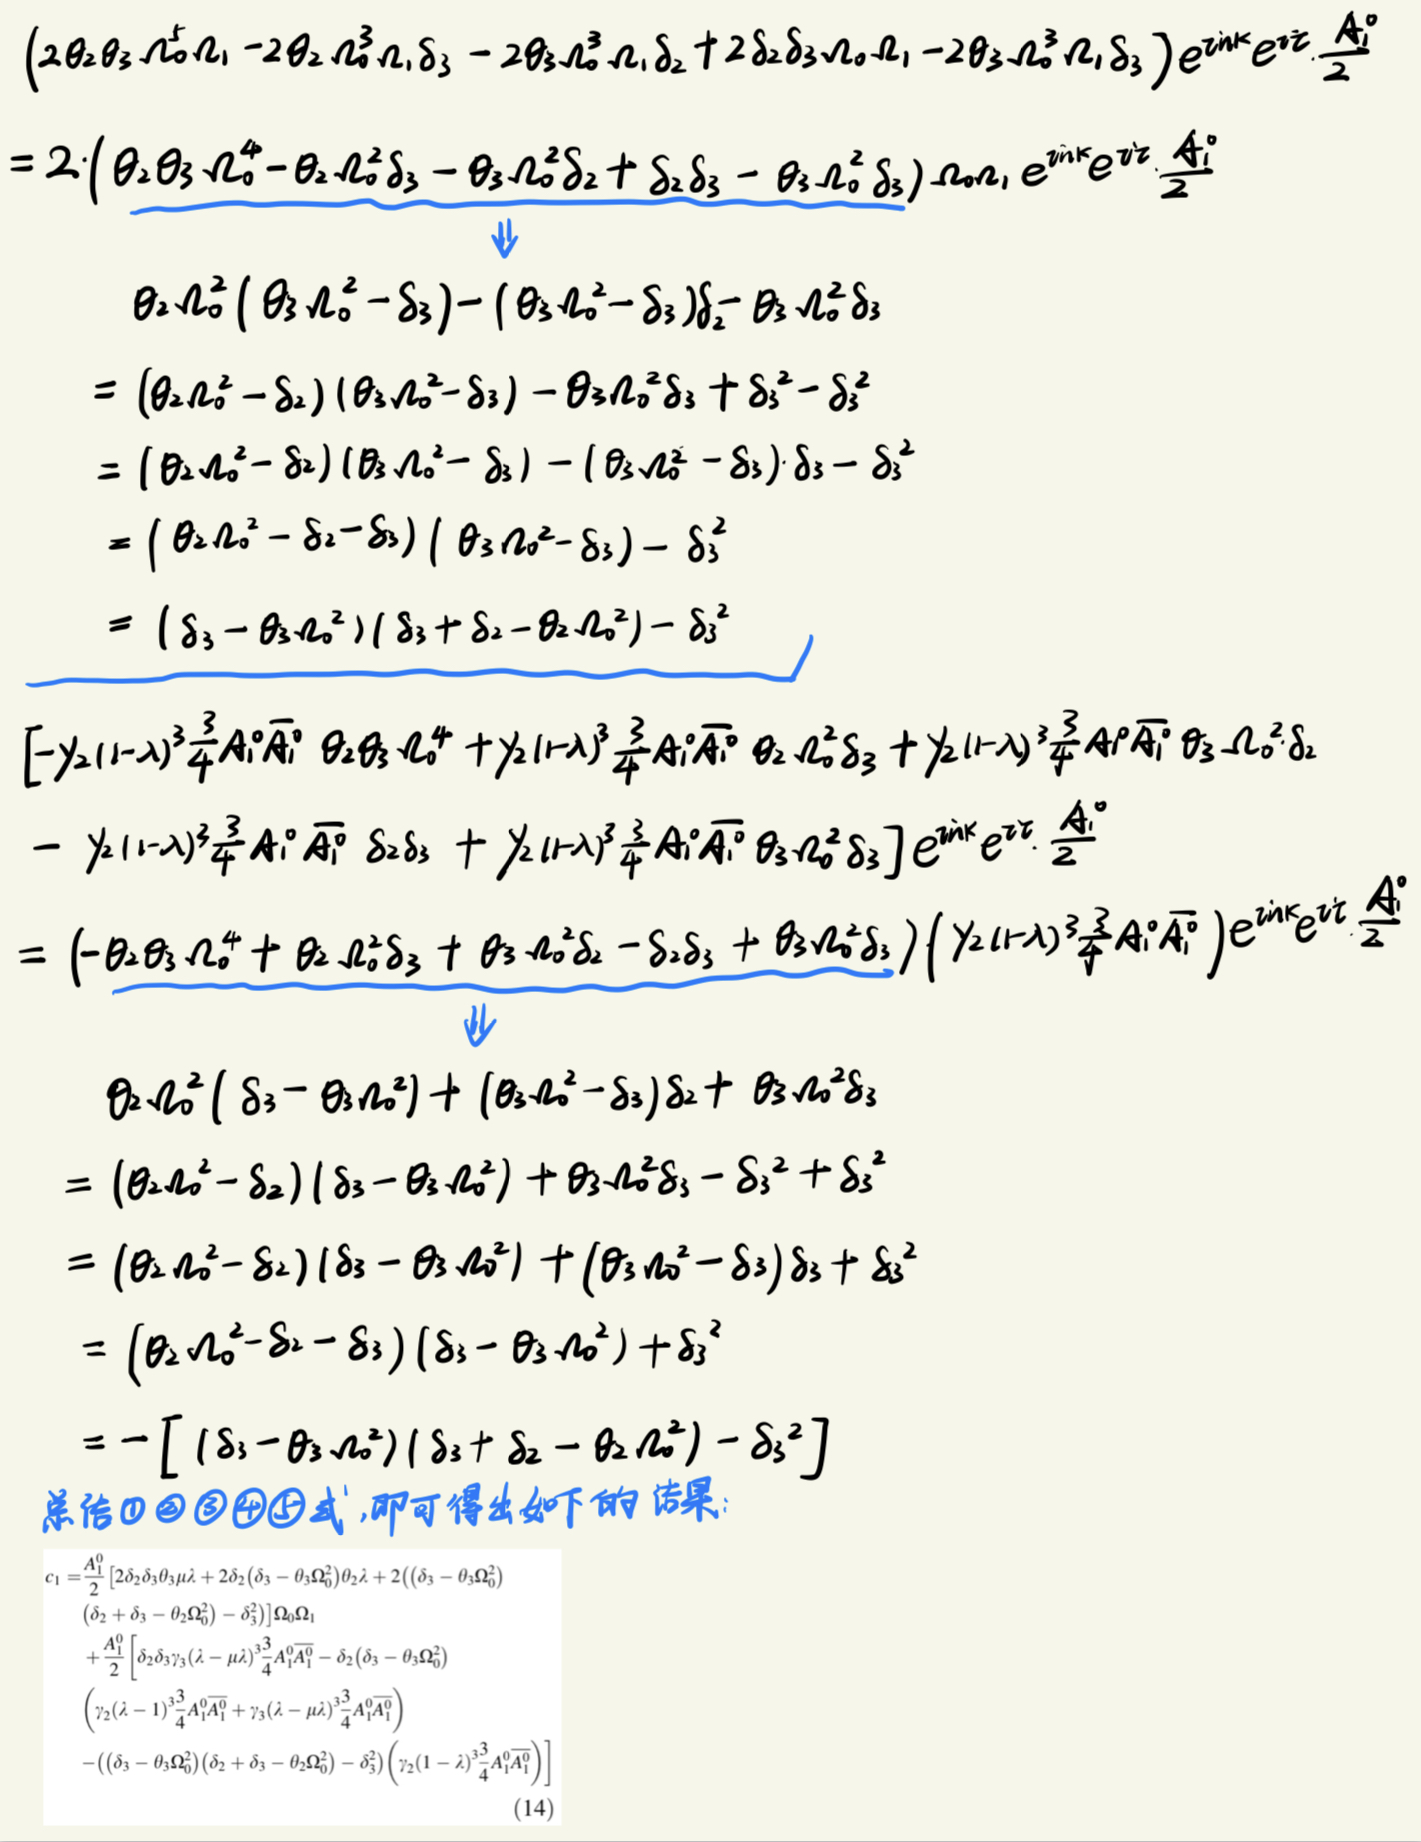 (2θ₂θ₃Ω₀⁵Ω₁ − 2θ₂Ω₀³Ω₁δ₃ − 2θ₃Ω₀³Ω₁δ₂ + 2δ₂δ₃Ω₀Ω₁ − 2θ₃Ω₀³Ω₁δ₃) e^{inκ} e^{iτ} · A₁⁰/2
= 2·(θ₂θ₃Ω₀⁴ − θ₂Ω₀²δ₃ − θ₃Ω₀²δ₂ + δ₂δ₃ − θ₃Ω₀²δ₃) Ω₀Ω₁ e^{inκ} e^{iτ} · A₁⁰/2
⇓
θ₂Ω₀²(θ₃Ω₀² − δ₃) − (θ₃Ω₀² − δ₃)δ₂ − θ₃Ω₀²δ₃
= (θ₂Ω₀² − δ₂)(θ₃Ω₀² − δ₃) − θ₃Ω₀²δ₃ + δ₃² − δ₃²
= (θ₂Ω₀² − δ₂)(θ₃Ω₀² − δ₃) − (θ₃Ω₀² − δ₃)·δ₃ − δ₃²
= (θ₂Ω₀² − δ₂ − δ₃)(θ₃Ω₀² − δ₃) − δ₃²
= (δ₃ − θ₃Ω₀²)(δ₃ + δ₂ − θ₂Ω₀²) − δ₃²
[−γ₂(1−λ)³ 3/4 A₁⁰A̅₁⁰ θ₂θ₃Ω₀⁴ + γ₂(1−λ)³ 3/4 A₁⁰A̅₁⁰ θ₂Ω₀²δ₃ + γ₂(1−λ)³ 3/4 A₁⁰A̅₁⁰ θ₃Ω₀²·δ₂
− γ₂(1−λ)³ 3/4 A₁⁰A̅₁⁰ δ₂δ₃ + γ₂(1−λ)³ 3/4 A₁⁰A̅₁⁰ θ₃Ω₀²δ₃] e^{inκ} e^{iτ} · A₁⁰/2
= (−θ₂θ₃Ω₀⁴ + θ₂Ω₀²δ₃ + θ₃Ω₀²δ₂ − δ₂δ₃ + θ₃Ω₀²δ₃)(γ₂(1−λ)³ 3/4 A₁⁰A̅₁⁰) e^{inκ} e^{iτ} · A₁⁰/2
⇓
θ₂Ω₀²(δ₃ − θ₃Ω₀²) + (θ₃Ω₀² − δ₃)δ₂ + θ₃Ω₀²δ₃
= (θ₂Ω₀² − δ₂)(δ₃ − θ₃Ω₀²) + θ₃Ω₀²δ₃ − δ₃² + δ₃²
= (θ₂Ω₀² − δ₂)(δ₃ − θ₃Ω₀²) + (θ₃Ω₀² − δ₃)δ₃ + δ₃²
= (θ₂Ω₀² − δ₂ − δ₃)(δ₃ − θ₃Ω₀²) + δ₃²
= −[(δ₃ − θ₃Ω₀²)(δ₃ + δ₂ − θ₂Ω₀²) − δ₃²]
总结①②③④⑤式,即可得出如下的结果:
c₁ = A₁⁰/2 [2δ₂δ₃θ₃μλ + 2δ₂(δ₃ − θ₃Ω₀²)θ₂λ + 2((δ₃ − θ₃Ω₀²)
(δ₂ + δ₃ − θ₂Ω₀²) − δ₃²)]Ω₀Ω₁
+ A₁⁰/2 [δ₂δ₃γ₃(λ − μλ)³ 3/4 A₁⁰A̅₁⁰ − δ₂(δ₃ − θ₃Ω₀²)
(γ₂(λ − 1)³ 3/4 A₁⁰A̅₁⁰ + γ₃(λ − μλ)³ 3/4 A₁⁰A̅₁⁰)
−((δ₃ − θ₃Ω₀²)(δ₂ + δ₃ − θ₂Ω₀²) − δ₃²)(γ₂(1 − λ)³ 3/4 A₁⁰A̅₁⁰)]
(14)